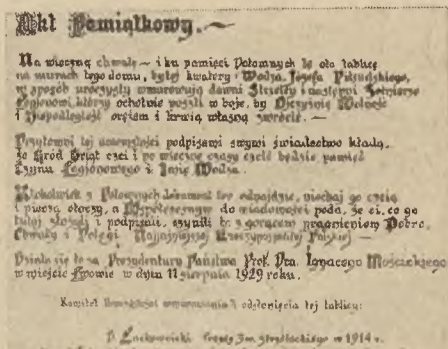 Akt Pamiątkowy.
Na wieczną chwałę – i ku pamięci Potomnych te oto tablicę
na murach tego domu, byłej kwatery Wodza, Józefa Piłsudskiego,
w sposób uroczysty wmurowują dawni Strzelcy i następni Żołnierze
Legionowi, którzy ochotnie poszli w boje, by Ojczyźnie Wolność
i Niepodległość orężem i krwią własną zwrócić. –
Przytomni tej uroczystości podpisami swymi świadectwo kładą,
że Gród czci i po wieczne czasy czcić będzie pamięć
Czynu Legionowego i Imię Wodza.
Ktokolwiek z Potomnych dokument ten odnajdzie, niechaj go czcią
i pieczą otoczy, a Współczesnym do wiadomości poda, że ci, co go
tutaj złożyli i podpisali, czynili to z gorącem pragnieniem Dobra,
Chwały i Potęgi Najjaśniejszej Rzeczypospolitej Polskiej –
Działo się to za Prezydentury Państwa Prof. Dra. Ignacego Mościckiego
w mieście Lwowie w dniu 11 sierpnia 1929 roku.
Komitet wmurowania i odsłonięcia tej tablicy:
w 1914 r.